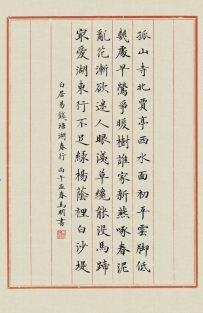 孤山寺北賈亭西水面初平雲脚低
幾處早鶯爭暖樹誰家新燕啄春泥
亂花漸欲迷人眼淺草纔能沒馬蹄
冣愛湖東行不足綠楊蔭裡白沙堤
白居易錢塘湖春行 丙午孟春馬明書